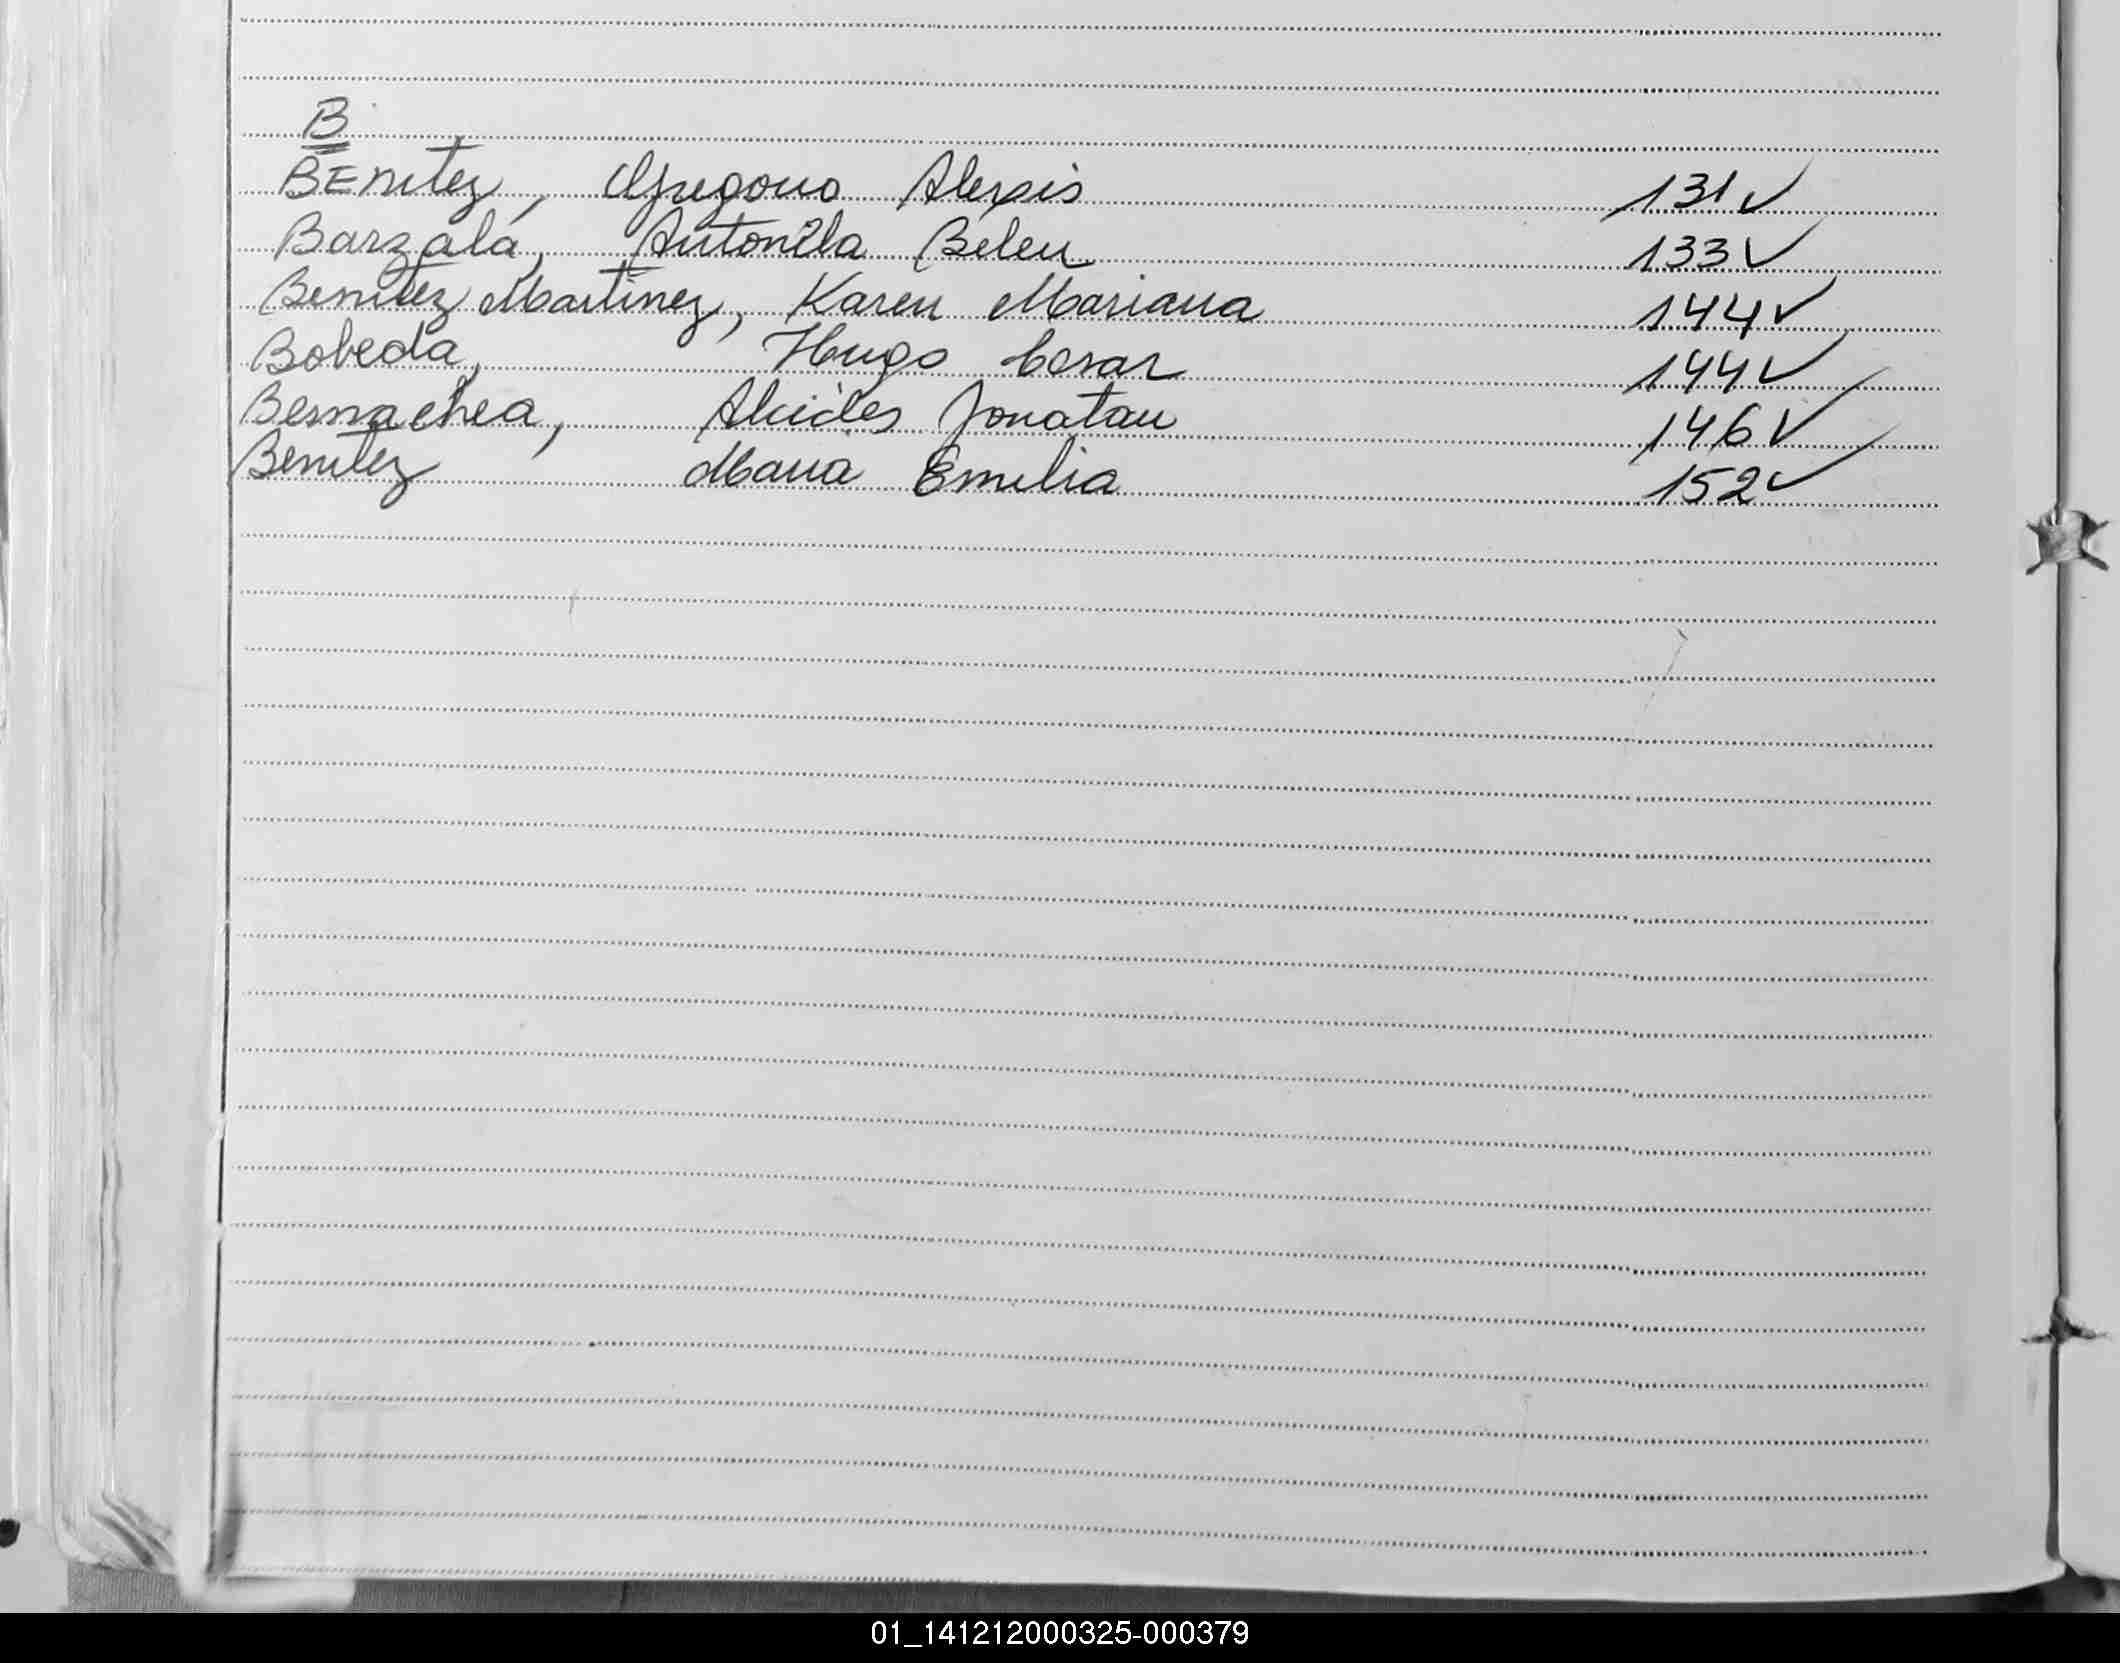 B
BEnitez, Gregorio Alexis 131✓
Barzala, Antonela Belen 133✓
Benitez Martinez, Karen Mariana 144✓
Bobeda, Hugo Cesar 144✓
Bernachea, Alcides Jonatan 146✓
Benitez Maria Emilia 152✓
01_141212000325-000379